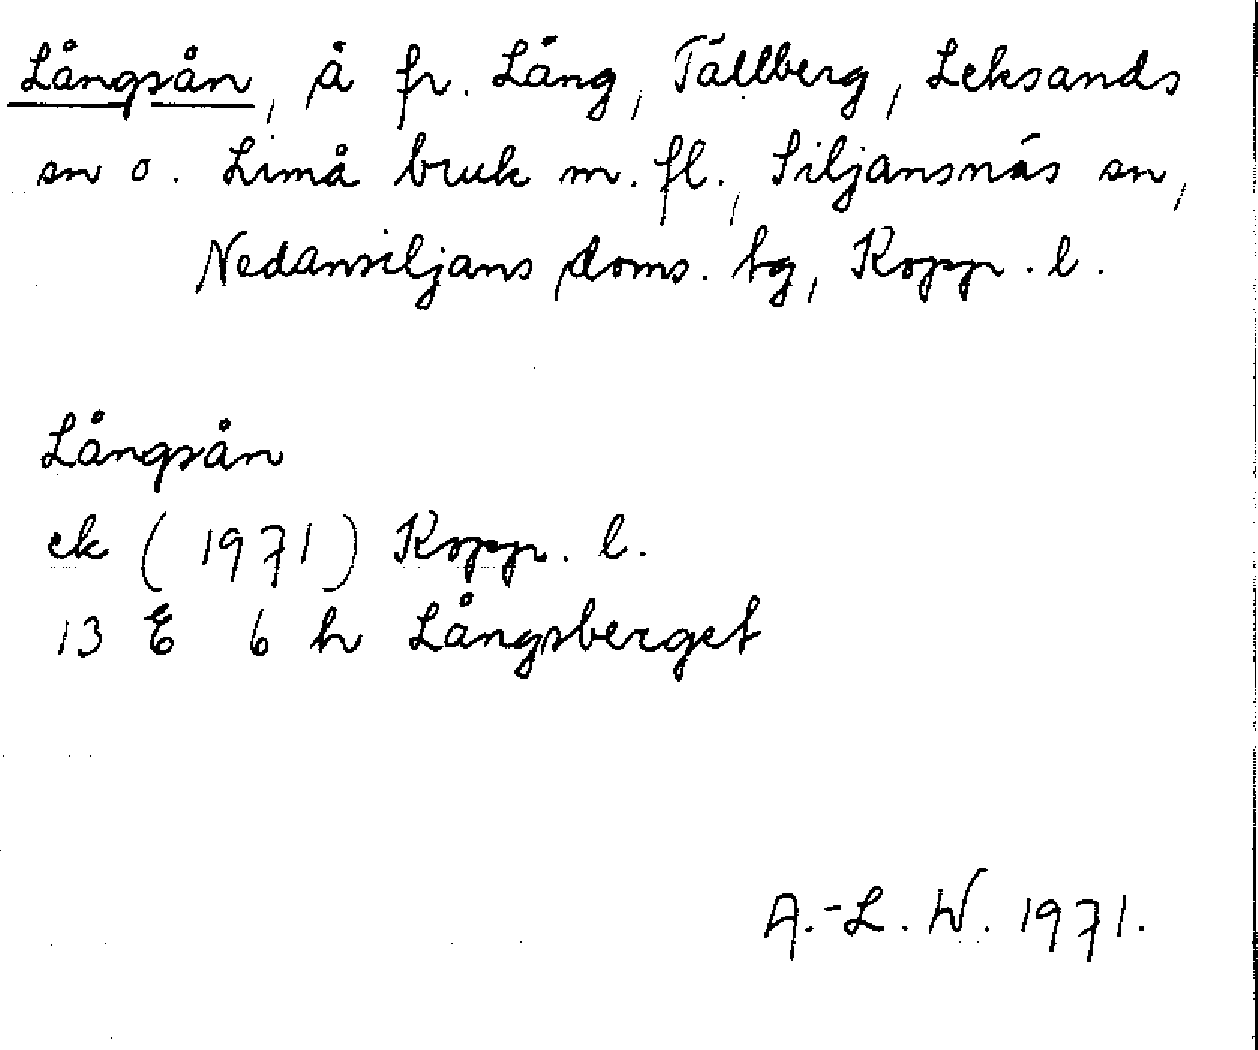 Långsån, å fr. Lång, Tällberg, Leksands
sn o. Limå bruk m. fl., Siljansnäs sn,
Nedansiljans doms. tg, Kopp. l.
Långsån
ek (1971) Kopp. l.
13 E 6 h Långsberget
A.-L. W. 1971.